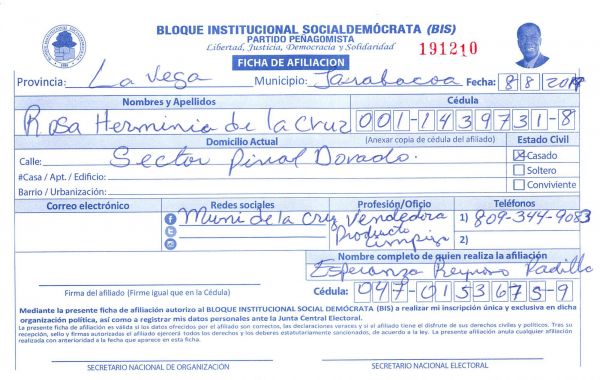 BLOQUE INSTITUCIONAL SOCIALDEMÓCRATA (BIS)
PARTIDO PEÑAGOMISTA
Libertad, Justicia, Democracia y Solidaridad
FICHA DE AFILIACION
191210
Provincia: La Vega Municipio: Jarabacoa Fecha: 8/8/2017
Nombres y Apellidos Cédula
Rosa Herminia de la Cruz 001-1439731-8
Domicilio Actual (Anexar copia de cédula del afiliado) Estado Civil
Calle: Sector Pinal Dorado. Casado
#Casa / Apt. / Edificio: Soltero
Barrio / Urbanización: Conviviente
Correo electrónico Redes sociales Profesión/Oficio Teléfonos
Muni de la Cruz Vendedora 1) 809-344-9083
Producto
Limpieza 2)
Nombre completo de quien realiza la afiliación
Esperanza Reynoso Padilla
Firma del afiliado (Firme igual que en la Cédula) Cédula: 047-0153675-9
Mediante la presente ficha de afiliación autorizo al BLOQUE INSTITUCIONAL SOCIAL DEMÓCRATA (BIS) a realizar mi inscripción única y exclusiva en dicha
organización política, así como a registrar mis datos personales ante la Junta Central Electoral.
La presente ficha de afiliación es válida si los datos ofrecidos por el afiliado son correctos, las declaraciones veraces y si al afiliado tiene el disfrute de sus derechos civiles y políticos. Tras su
recepción, sello y firmas autorizadas el afiliado ejercerá todos los derechos y los deberes estatutariamente sancionados, de acuerdo a la ley. La presente afiliación anula cualquier afiliación
realizada con anterioridad a la fecha que aparece en esta ficha.
SECRETARIO NACIONAL DE ORGANIZACIÓN SECRETARIO NACIONAL ELECTORAL